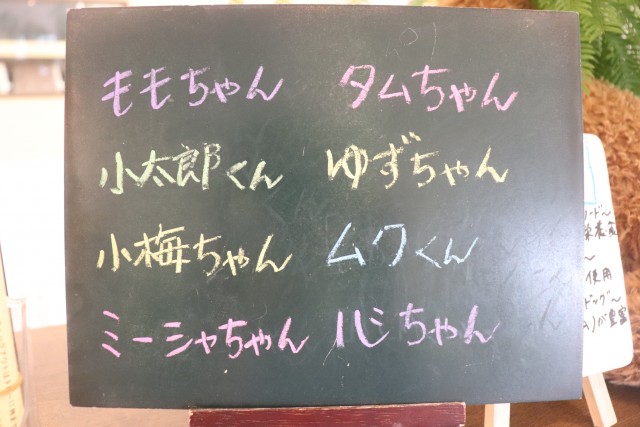 ももちゃん タムちゃん
小太郎くん ゆずちゃん
小梅ちゃん ムクくん
ミーシャちゃん
ード〜
栄養
〜
使用
ドッグ〜
が豊富